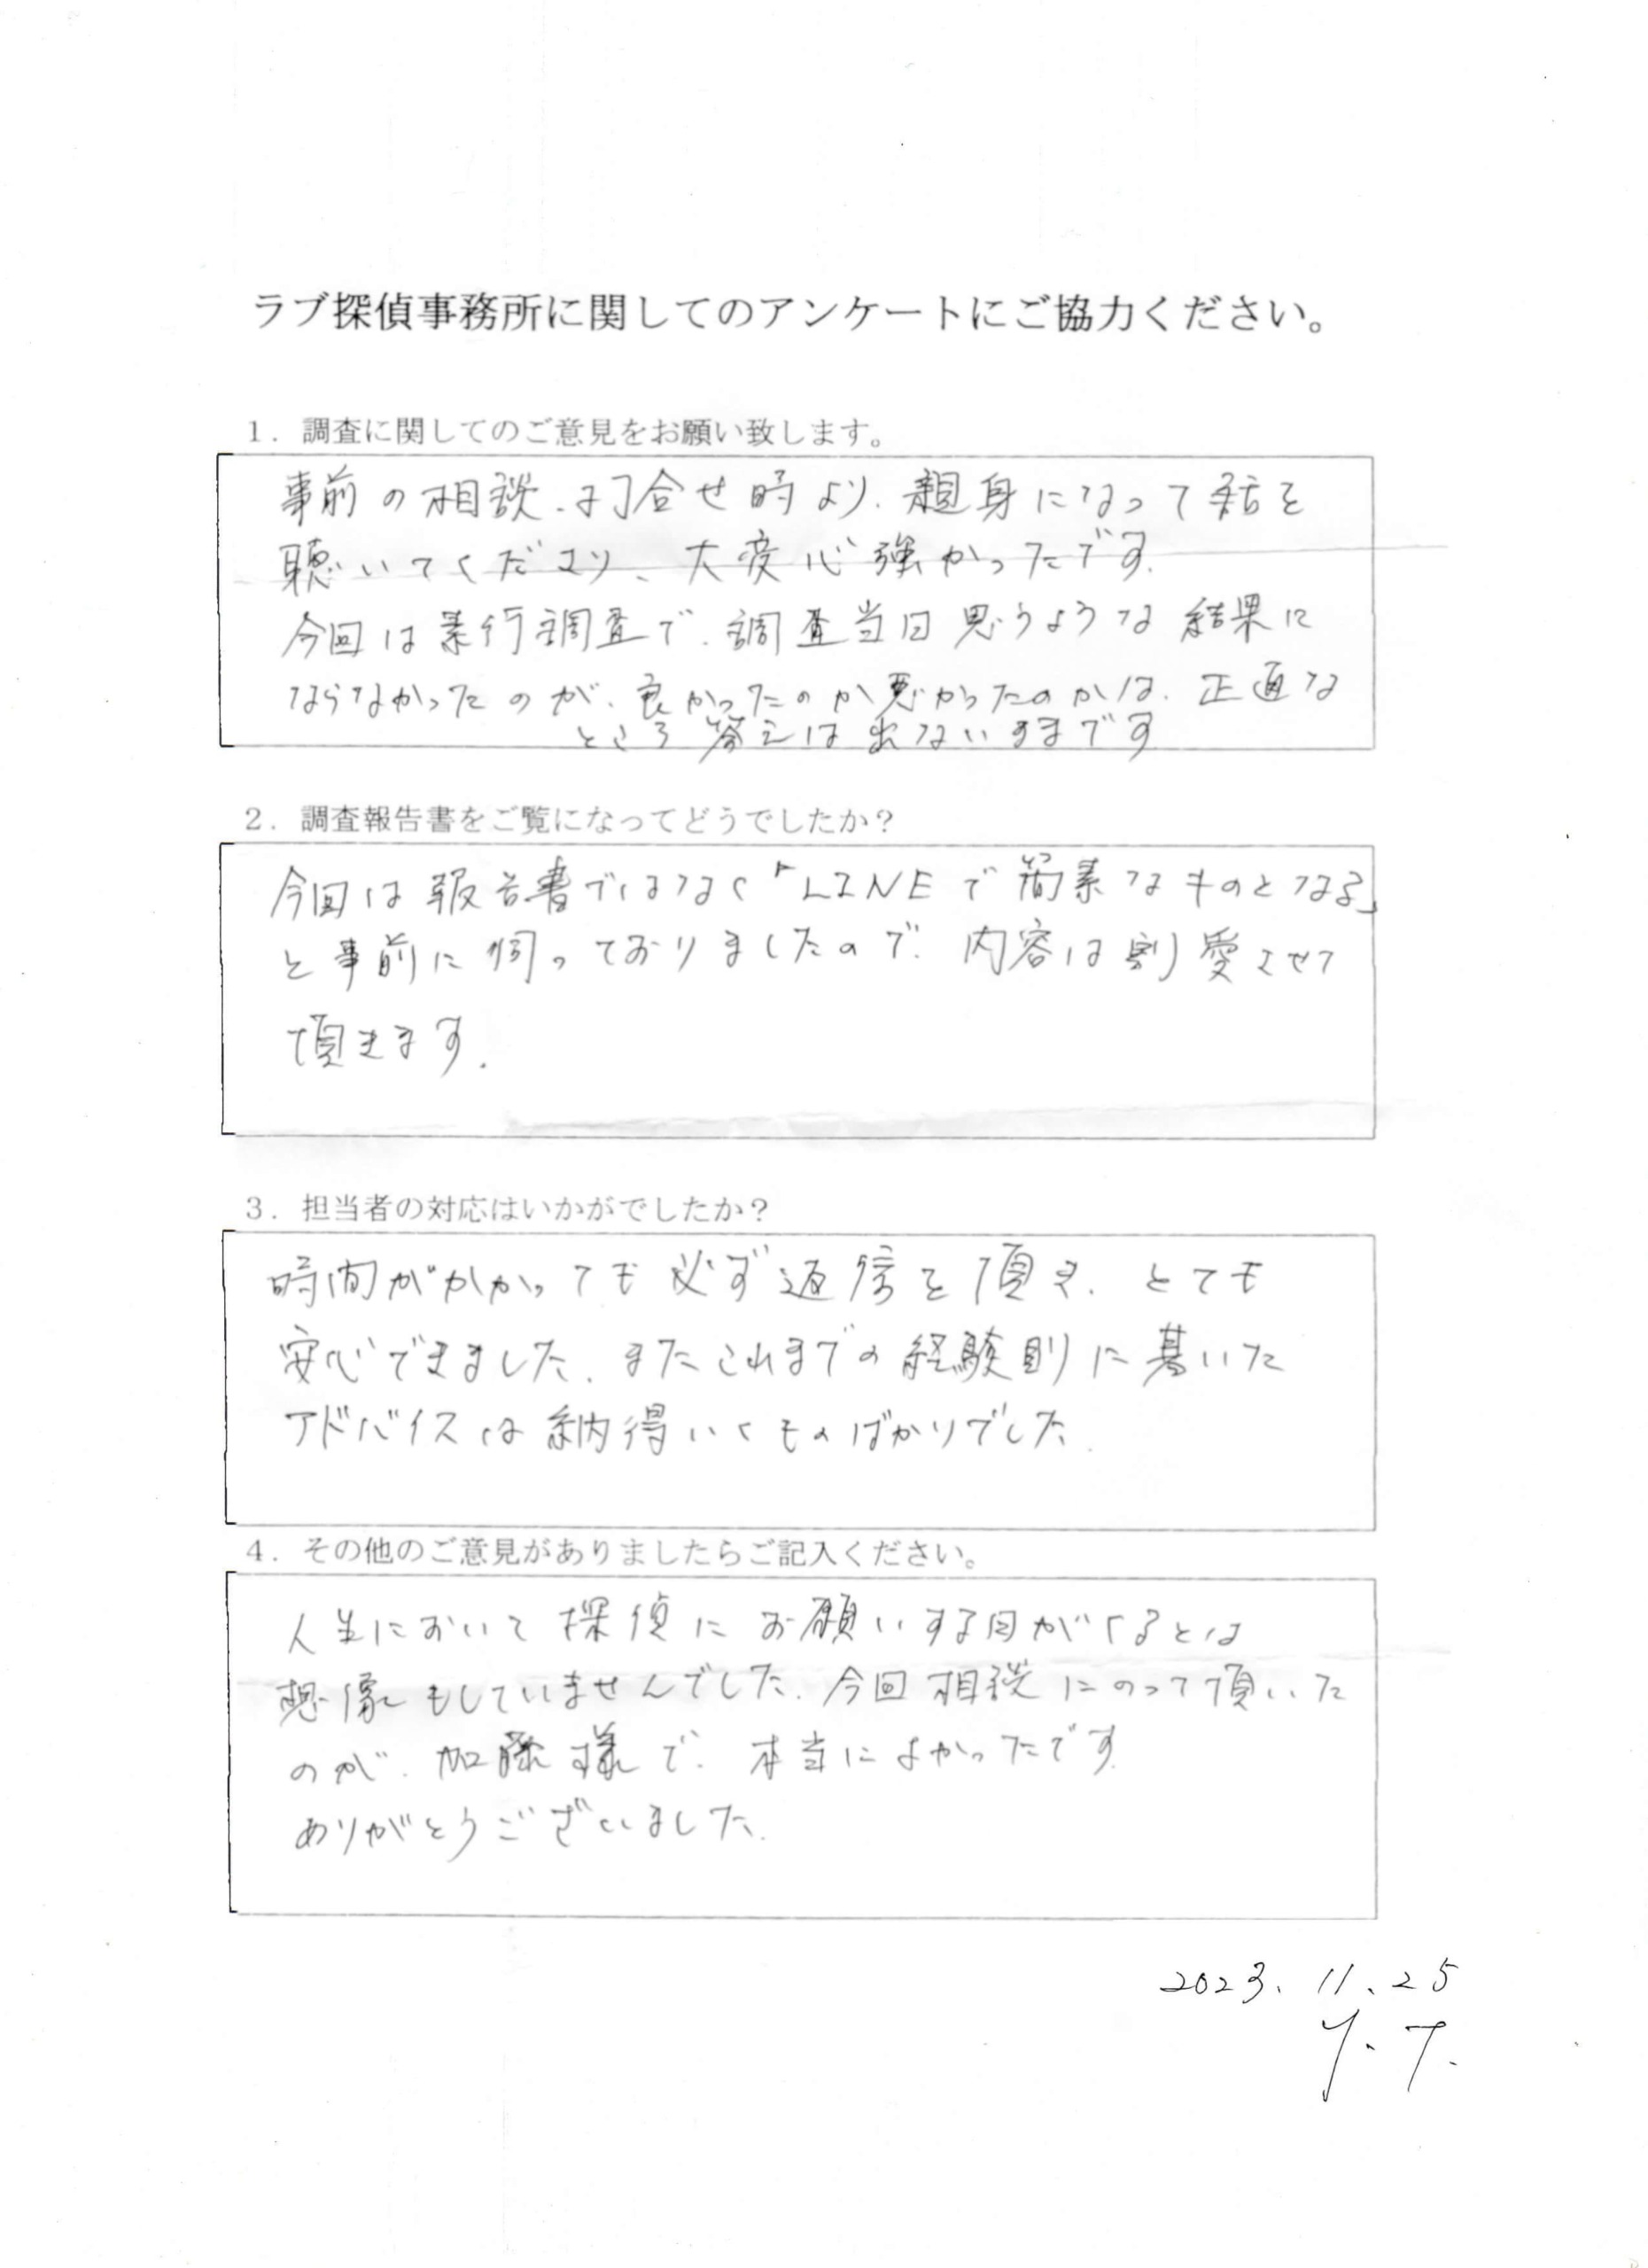 ラブ探偵事務所に関してのアンケートにご協力ください。
1. 調査に関してのご意見をお願い致します。
事前の相談、打合せ時より、親身になって話を
聴いてくださり、大変心強かったです.
今回は素行調査で、調査当日思うような結果に
ならなかったのが、良かったのか悪かったのかは、正直な
ところ答えは出ないままです
2. 調査報告書をご覧になってどうでしたか?
今回は報告書ではなく「LINEで簡素なものとなる」
と事前に伺っておりましたので、内容は割愛させて
頂きます.
3. 担当者の対応はいかがでしたか?
時間がかかっても必ず返信を頂き、とても
安心できました. またこれまでの経験則に基いた
アドバイスは納得いくものばかりでした.
4. その他のご意見がありましたらご記入ください。
人生において探偵にお願いする日がくるとは
想像もしていませんでした. 今回相談にのって頂いた
のが、加藤様で、本当によかったです.
ありがとうございました.
2023. 11. 25
Y. T.